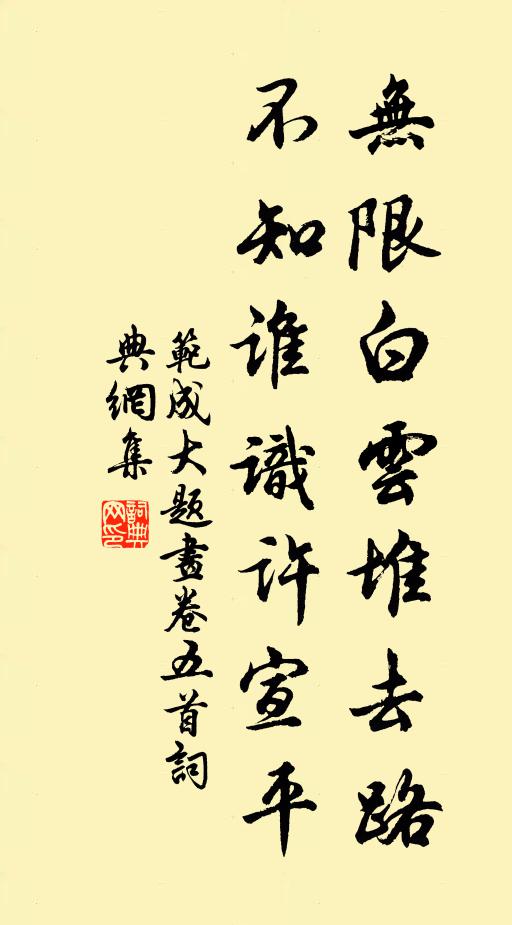 無限白雲堆去路
不知誰識許宣平
範成大題畫卷五首詞
典網集
詞典網印